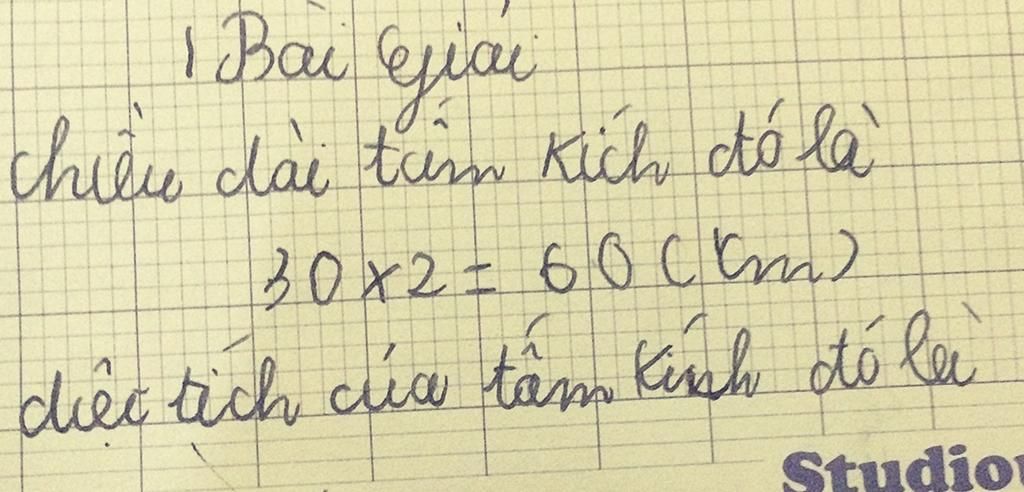 1 Bài Giải
chiều dài tấm kích đó là
30 x 2 = 60 (cm)
diệc tích của tấm kính đó là
Studio